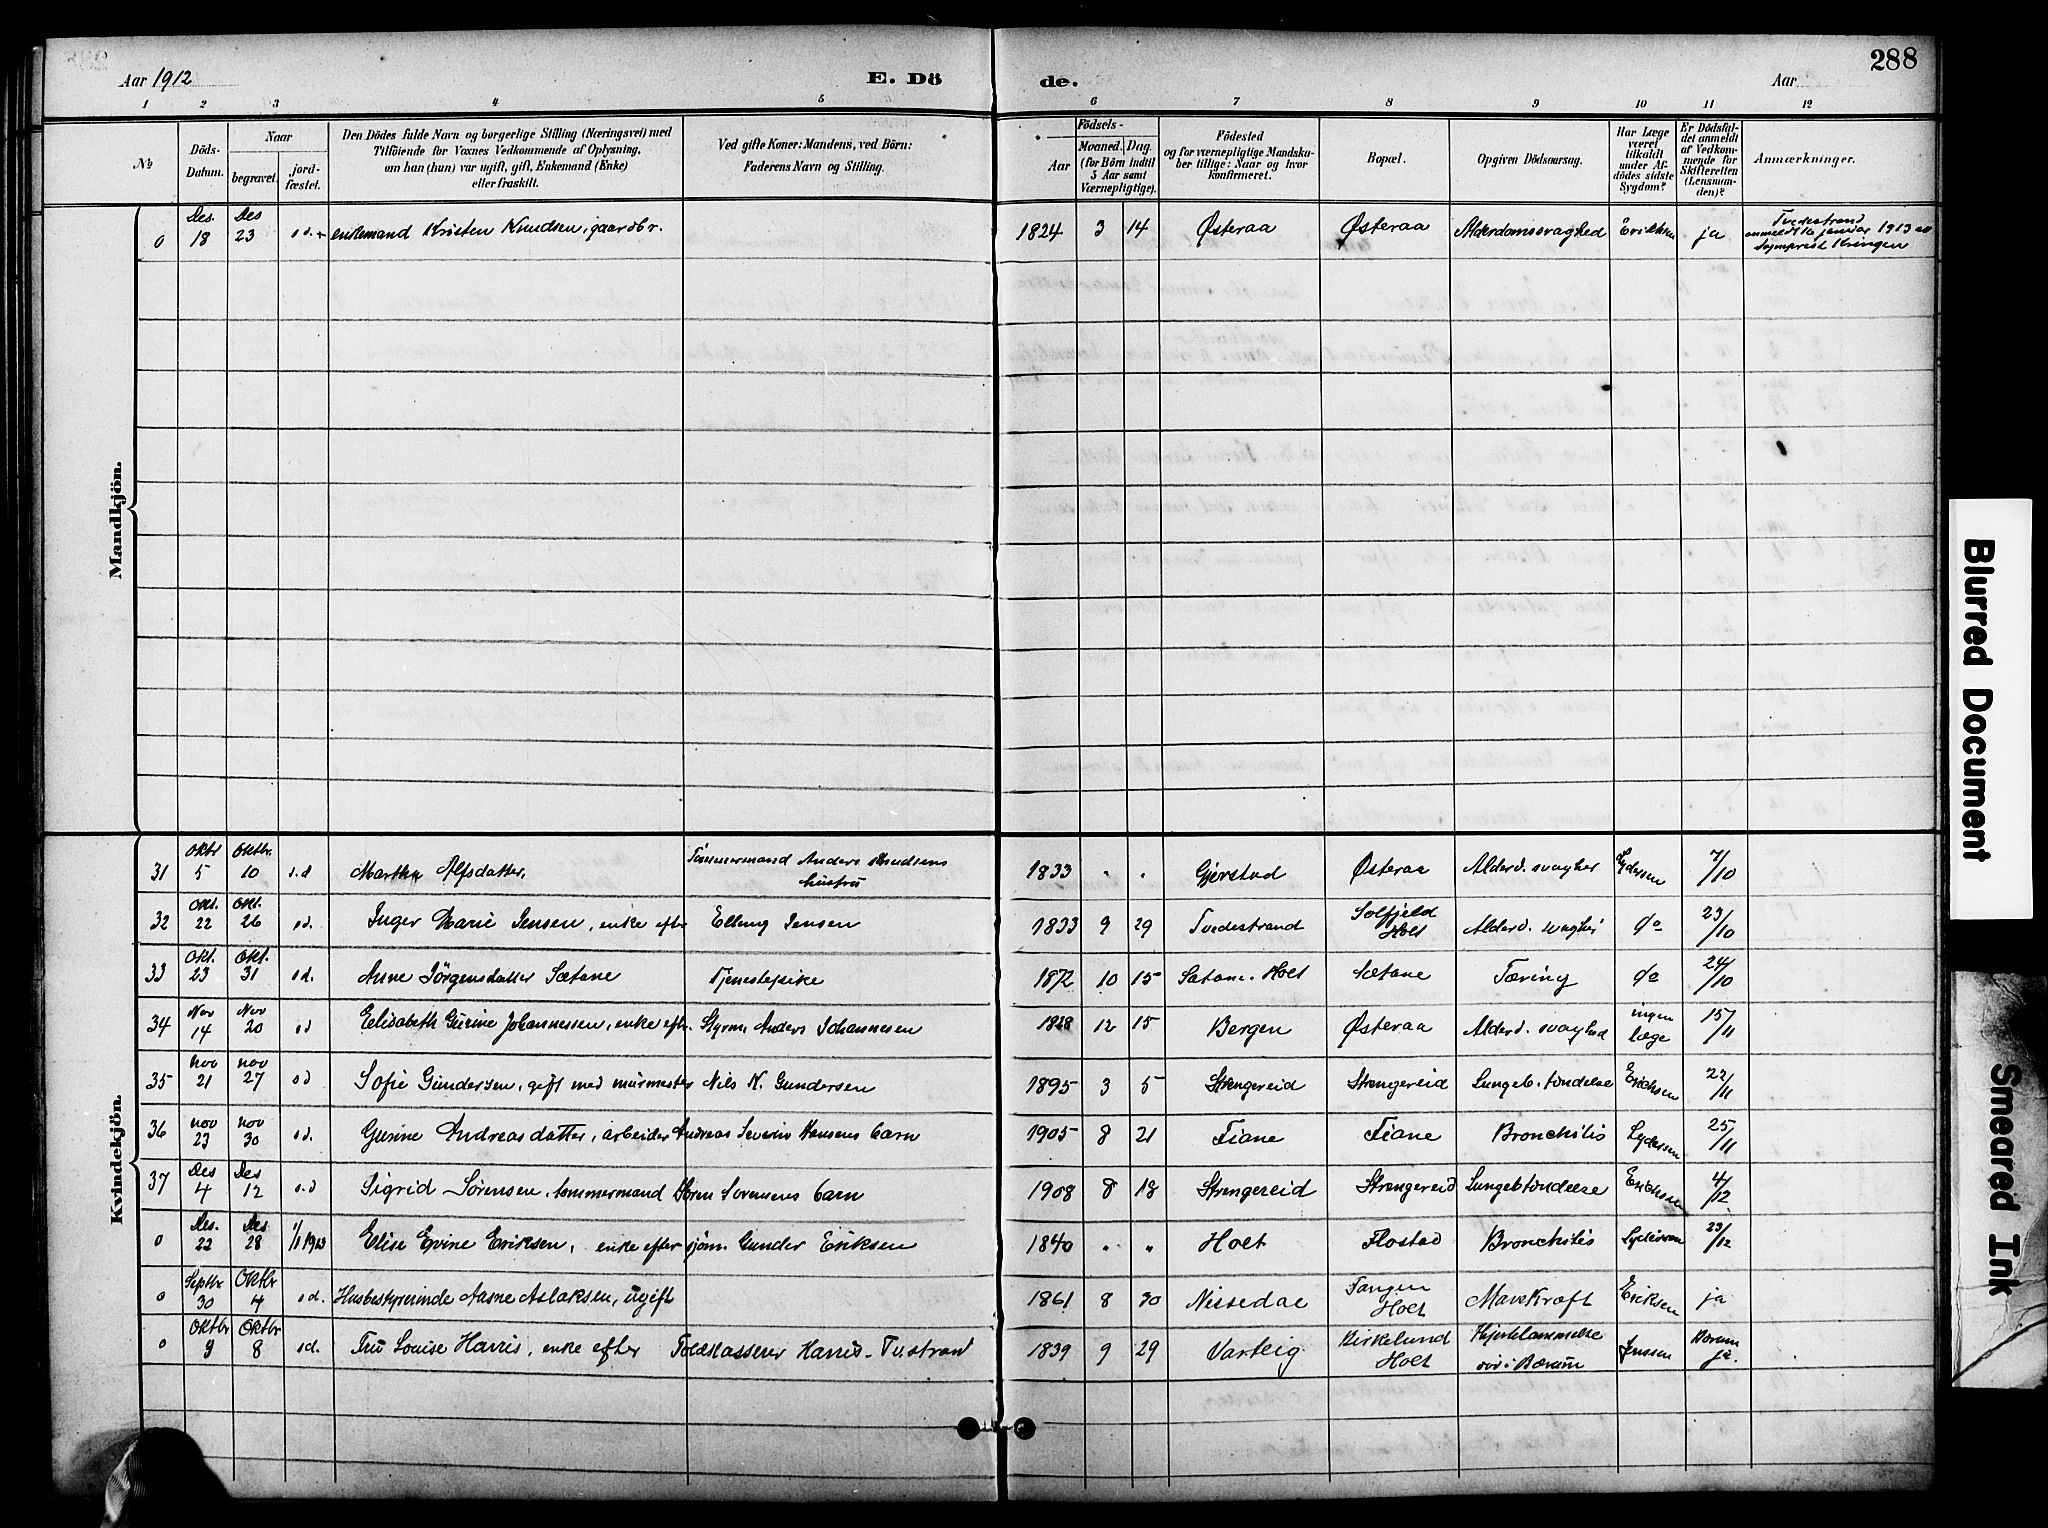 Aar 1912
E. Dö
de.
Aar
288
1 2 3 4 5 6 7 8 9 10 11 12
No
Döds-
Datum.
Naar
begravet.
jord-
fæstet.
Den Dödes fulde Navn og borgerlige Stilling (Næringsvei) med
Tilföiende for Voxnes Vedkommende af Oplysning.
om han (hun) var ugift, gift, Enkemand (Enke)
eller fraskilt.
Ved gifte Koner: Mandens, ved Börn:
Faderens Navn og Stilling.
Födsels-
Aar
Maaned. Dag.
(for Börn indtil
5 Aar samt
Værnepligtige).
Födested
og for værnepligtige Mandska-
ber tillige: Naar og hvor
konfirmeret.
Bopæl.
Opgiven Dödsaarsag.
Har Læge
været
tilkaldt
under Af-
dödes sidste
Sygdom?
Er Dödsfal-
det anmeldt
af Vedkom-
mende for
Skifteretten
(Lensman-
den)?
Anmærkninger.
Mandkjön.
0 Des. 18 Des 23 s.d. enkemand Kristen Knudsen, gaardbr. 1824 3 14 Østeraa Østeraa Alderdomssvaghed Eriksen ja
Tvedestrand
anmeldt 16 januar 1913 av
Sogneprest Kringen
Kvindekjön.
31 Oktr 5 Oktbr. 10 s.d Martha Alfsdatter, Tömmermand Anders Knudsens
hustru 1833 " " Gjerstad Østeraa Alderd. svaghet Lydersen 7/10
32 Okt. 22 Okt. 26 s.d. Inger Marie Jensen, enke efter Elling Jensen 1833 9 29 Tvedestrand Solfjeld
Holt Alderd. svaghet do 23/10
33 Okt. 23 Okt. 31 s.d. Anne Jörgensdatter Sætane Tjenestepike 1872 10 15 Satane. Holt Sætane Tæring do 24/10
34 Nov 14 Nov 20 s.d Elisabeth Gurine Johannessen, enke eft. Styrm. Anders Johannesen 1828 12 15 Bergen Østeraa Alderd. svaghed ingen
læge 15/11
35 nov 21 nov 27 s.d Sofie Gundersen, gift med murmester Nils K. Gundersen 1895 3 5 Strengereid Strengereid Lungebetændelse Erichsen 22/11
36 nov 23 nov 30 s.d. Gurine Andreasdatter, arbeider Andreas Severin Hansens barn 1905 8 21 Fiane Fiane Bronchitis Lydersen 25/11
37 Des 4 Des 12 s.d Sigrid Sörensen, tommermand Sören Sorensens barn 1908 8 18 Strengereid Strengereid Lungebetændelse Erichsen 4/12
0 Des. 22 Des 28 1/1 1913 Elise Evine Eriksen, enke efter sjöm. Gunder Eriksen 1840 " " Holt Flostad Bronchitis Lydersen 23/12
0 Septbr 30 Oktbr 4 s.d. Husbestyrerinde Aasne Aslaksen, ugift 1861 8 30 Nissedal Tangen
Holt Mavekræft Eriksen ja
0 Oktbr 9 Oktbr 8 s.d. Fru Louise Harris, enke efter Toldkasserer Harris - Tvstrand 1839 9 29 Varteig Kirkelund
Holt Hjertelammelse
död i Bærum Jenssen Bærum
ja.
Blurred Document
Smeared Ink